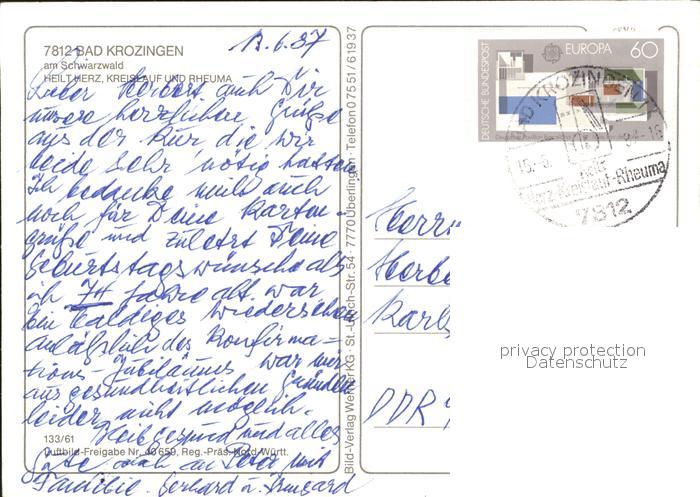 7812 BAD KROZINGEN
am Schwarzwald
HEILT HERZ, KREISLAUF UND RHEUMA
12.6.87
Lieber Herbert auch Dir
unsere herzlichen Grüße
aus der Kur, die wir
beide sehr nötig hatten
Ich bedanke mich auch
noch für Deine Karten-
grüße und zuletzt Deine
Geburtstagswünsche als
ich 74 Jahre alt war
ein baldiges Wiedersehen
anläßlich des Konfirma-
tions-Jubiläums war mir
aus gesundheitlichen Gründen
leider nicht möglich.
Bleib gesund und alles
133/61
Luftbild-Freigabe Nr. 40659, Reg.-Präs. Nord-Württ.
Gute auch an Peter mit
Familie. Gerhard u. Irmgard
Bild-Verlag KG · St.-Ulrich-Str. 54 · 7770 Überlingen · Telefon 07551/61937
DEUTSCHE BUNDESPOST
EUROPA
60
BAD KROZINGEN
heilt
Herz-Kreislauf-Rheuma
7812
Herrn
Herbe
Karl
DDR
privacy protection
Datenschutz